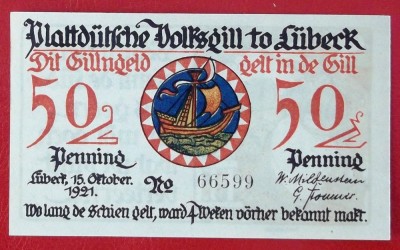 Plattdütsche Volksgill to Lübeck
Dit Gillngeld gelt in de Gill
50 50
Penning Penning
Lübeck, 15. Oktober. 1921.
No 66599
Wo lang de Schien gelt, ward 4 Weken vörher bekannt makt.